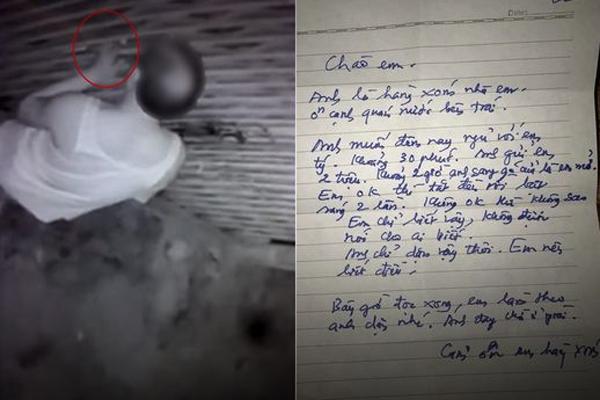 Date:
Chào em.
Anh là hàng xóm nhà em.
Ở cạnh quán nước bên trái.
Anh muốn đêm nay ngủ với em
tý. Khoảng 30 phút. Anh gửi em
2 triệu. Khoảng 2 giờ anh sang gõ cửa là em mở.
Em ok thì tắt đèn rồi bật
sáng 2 lần. Không ok thì không sao
Em chỉ biết vậy, không được
nói cho ai biết.
Anh chỉ dặn vậy thôi. Em nên
biết điều.
Bây giờ đọc xong, em làm theo
anh dặn nhé. Anh đang chờ ở
Cảm ơn em hàng xóm